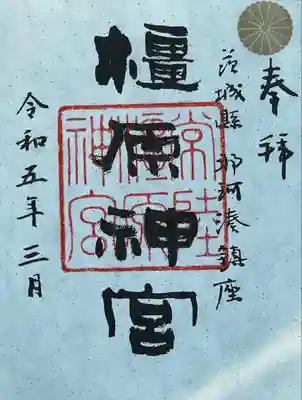 奉拝
茨城縣那珂湊鎮座
橿原神宮
常陸
橿原
神宮
令和五年三月